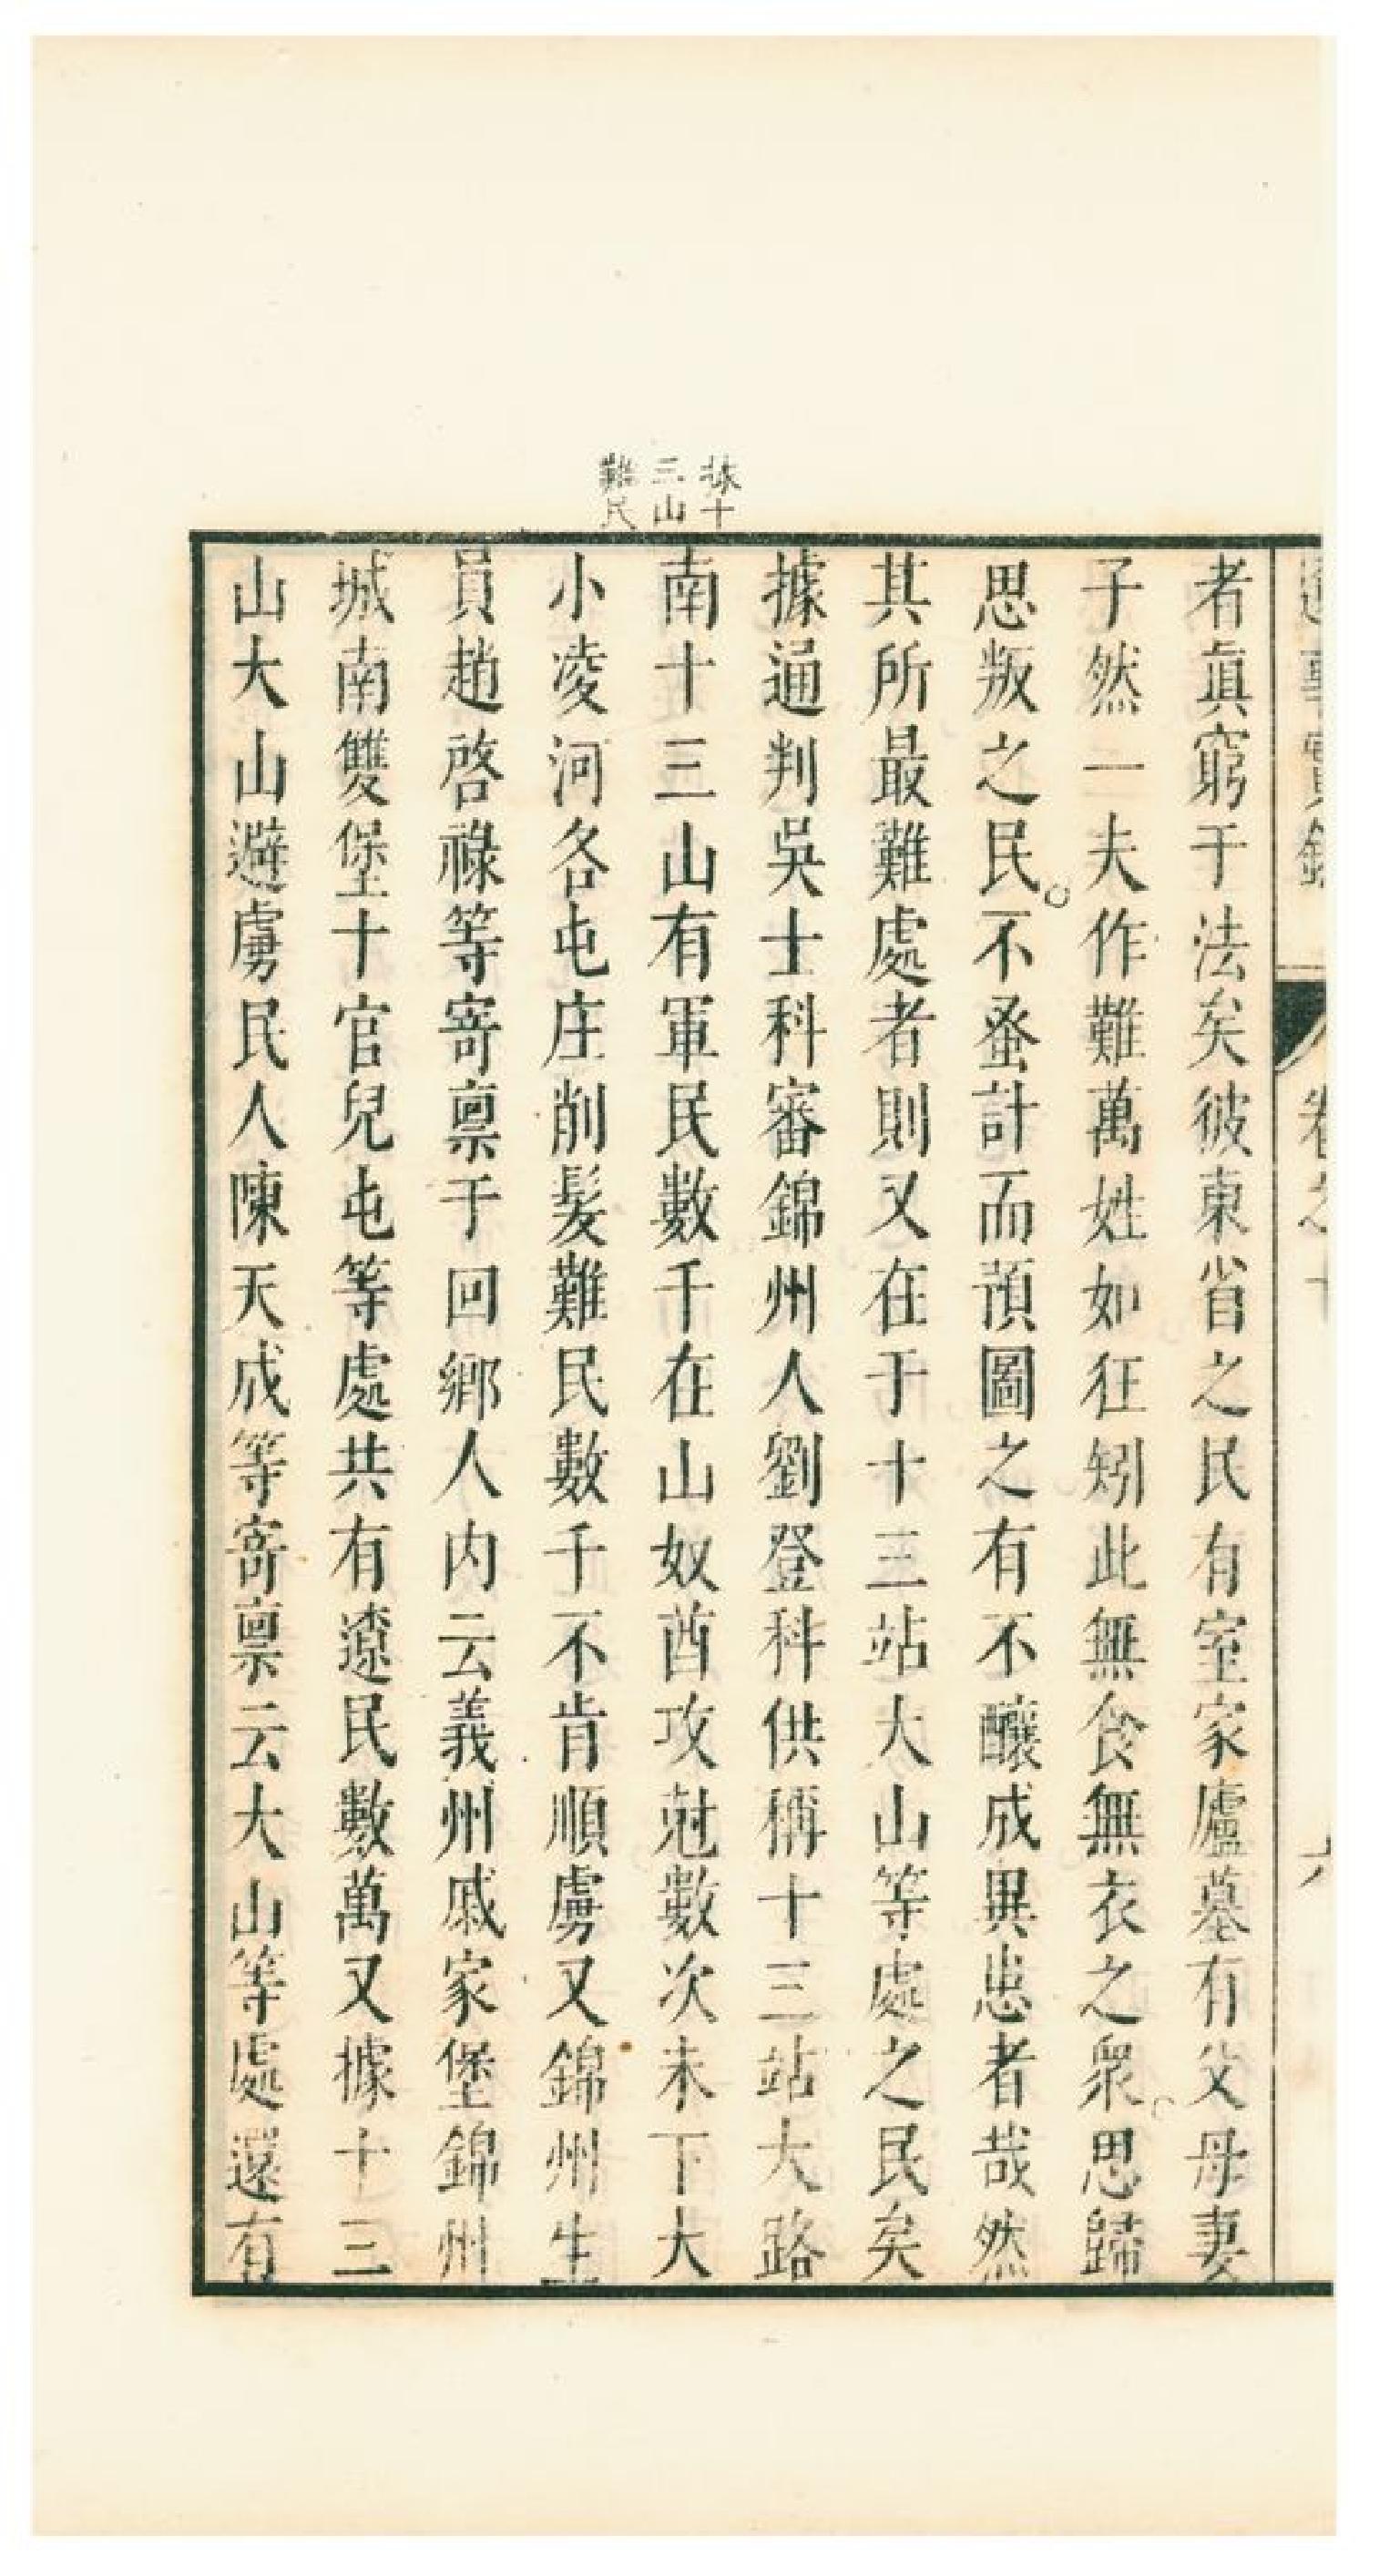 者眞窮于法矣彼東省之民有室家廬墓有父母妻
子然一夫作難萬姓如狂矧此無食無衣之衆思歸
思叛之民不蚤計而預圖之有不釀成異患者哉然
其所最難處者則又在于十三站大山等處之民矣
據通判吳士科審錦州人劉登科供稱十三站大路
南十三山有軍民數千在山奴酋攻尅數次未下大
小凌河各屯庄削髮難民數千不肯順虜又錦州生
員趙啓祿等寄禀于回鄉人內云義州戚家堡錦州
城南雙堡十官兒屯等處共有遼民數萬又據十三
山大山避虜民人陳天成等寄禀云大山等處還有
十
三山
難民
卷之十